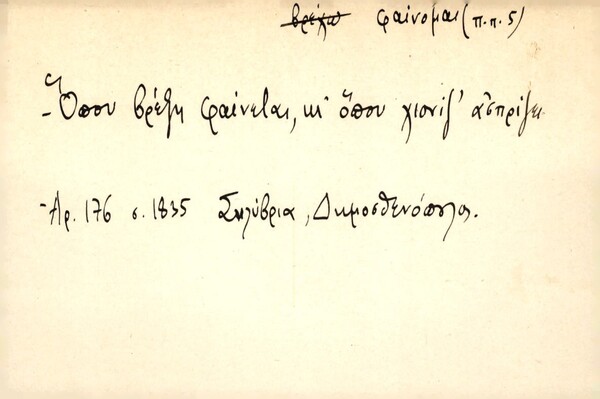 βρέχω φαίνομαι (π.π. 5)
- Ὅπου βρέξῃ φαίνεται, κι' ὅπου χιονίζ' ἀσπρίζει
- Ἀρ. 176 σ. 1835 Σηλύβρια, Δημοσθενόπουλος.